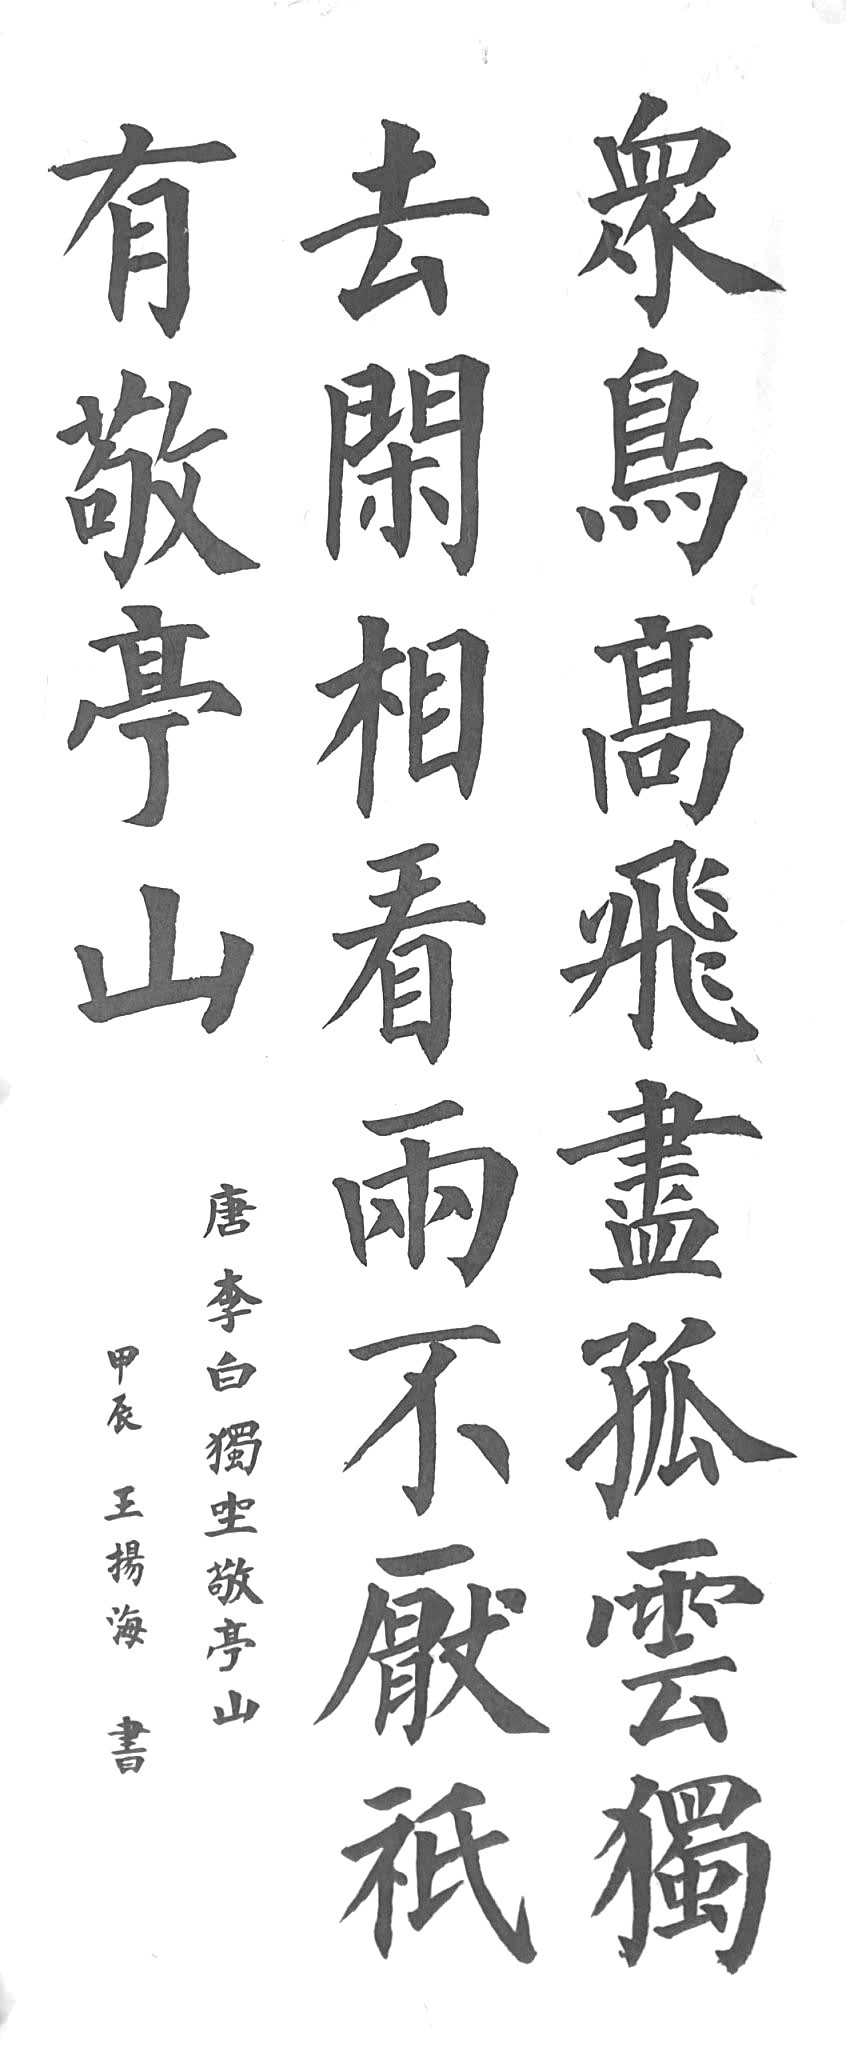 眾鳥高飛盡孤雲獨
去閑相看兩不厭祇
有敬亭山
唐李白獨坐敬亭山
甲辰 王揚海 書